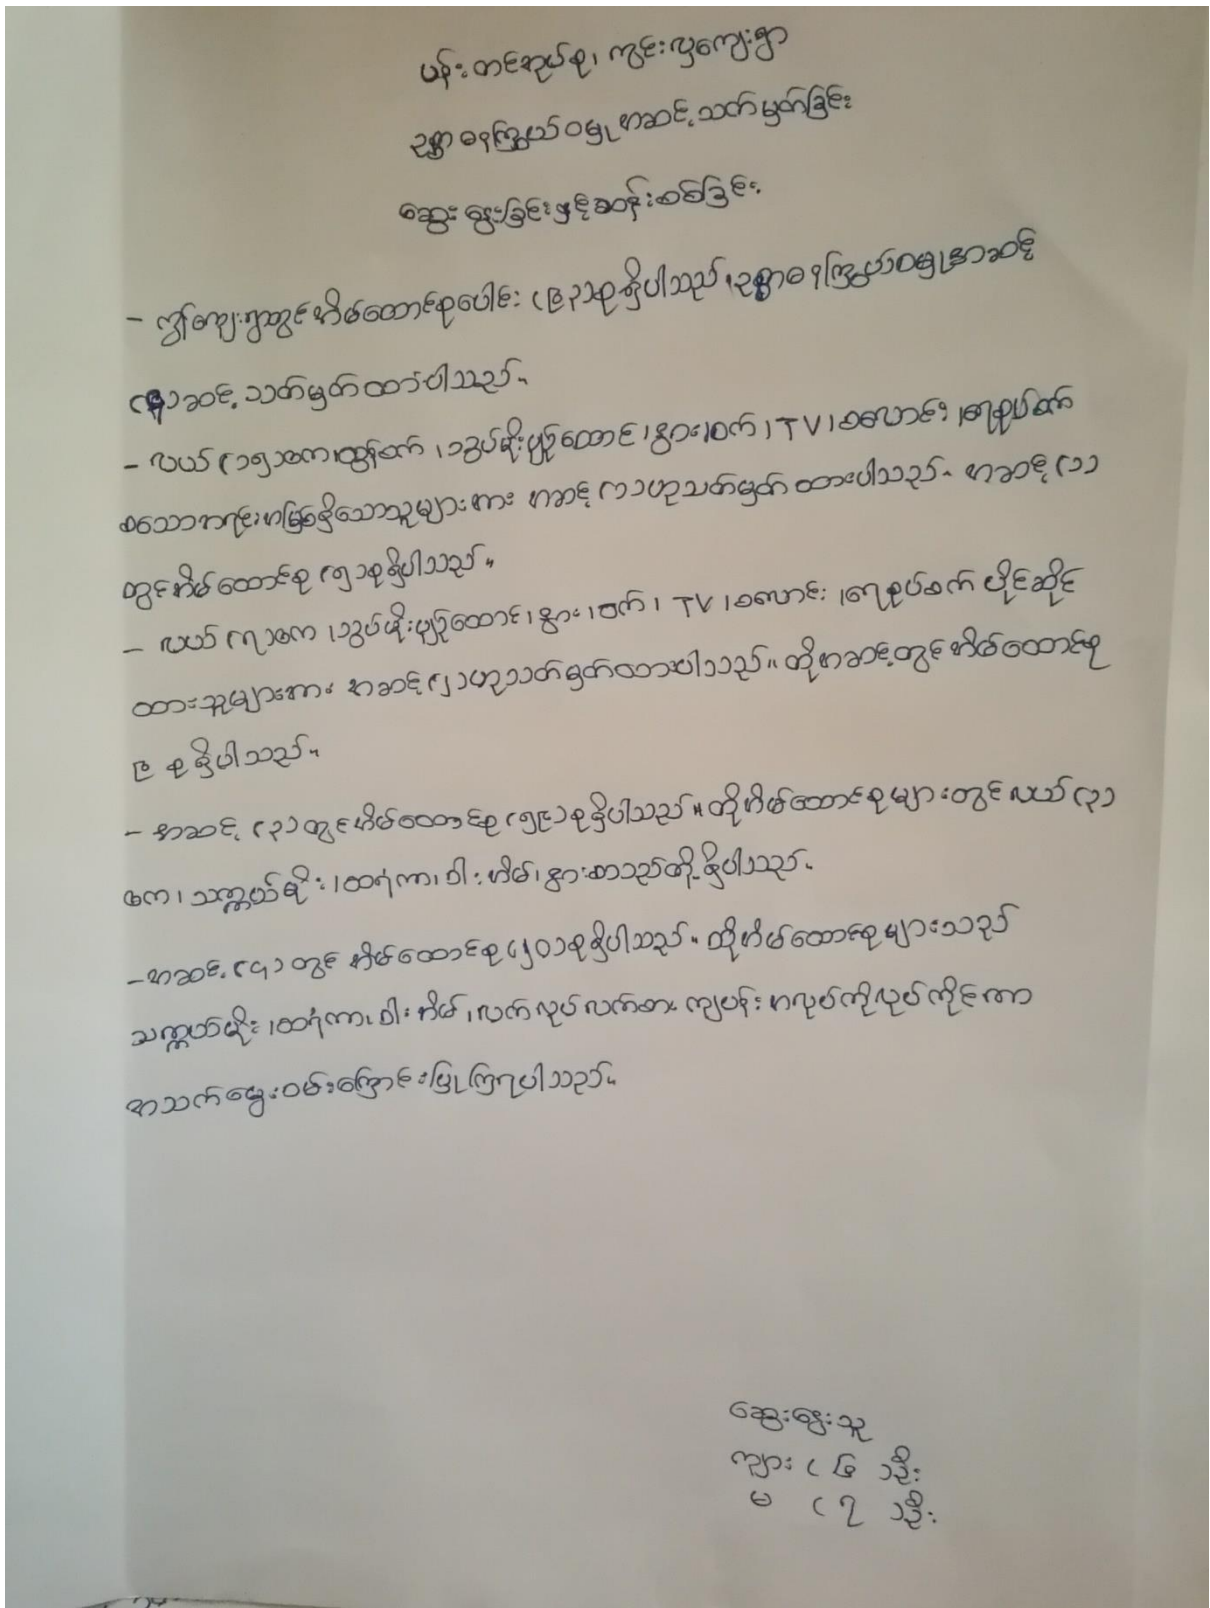 ပန်းတင်အုပ်စု၊ ကွင်းလှကျေးရွာ
ဥစ္စာဓနကြွယ်ဝမှုအဆင့်သတ်မှတ်ခြင်း
ဆွေးနွေးခြင်းနှင့်ဆန်းစစ်ခြင်း
- ဤကျေးရွာတွင်အိမ်ထောင်စုပေါင်း (၉၃)စုရှိပါသည်၊ဥစ္စာဓနကြွယ်ဝမှုအဆင့်
(၄)ဆင့် သတ်မှတ်ထားပါသည်။
- လယ် (၁၅)ဧက၊ထွန်စက်၊သွပ်မိုးပျဉ်ထောင်၊နွား၊ဝက်၊TV၊စလောင်း၊ရေစုပ်စက်
စသောအရင်းအမြစ်ရှိသောသူများအား အဆင့်(၁)ဟုသတ်မှတ်ထားပါသည်။ အဆင့်(၁)
တွင်အိမ်ထောင်စု(၅)စုရှိပါသည်။
- လယ်(၇)ဧက၊သွပ်မိုးပျဉ်ထောင်၊နွား၊ဝက်၊ TV၊စလောင်း၊ရေစုပ်စက် ပိုင်ဆိုင်
ထားသူများအား အဆင့်(၂)ဟုသတ်မှတ်ထားပါသည်။ ထိုအဆင့်တွင်အိမ်ထောင်စု
၉ စုရှိပါသည်။
- အဆင့်(၃)တွင်အိမ်ထောင်စု(၅၉)စုရှိပါသည်။ထိုအိမ်ထောင်စုများတွင်လယ်(၃)
ဧက၊ သက္ကယ်မိုး၊ထရံကာ၊ဝါးအိမ်၊နွားစသည်တို့ရှိပါသည်။
-အဆင့်(၄)တွင် အိမ်ထောင်စု(၂၀)စုရှိပါသည်။ ထိုအိမ်ထောင်စုများသည်
သက္ကယ်မိုး၊ထရံကာ၊ဝါးအိမ်၊လက်လုပ်လက်စား ကျပန်းအလုပ်ကိုလုပ်ကိုင်ကာ
အသက်မွေးဝမ်းကြောင်းပြုကြရပါသည်။
ဆွေးနွေးသူ
ကျား ( ၆ )ဦး
မ ( ၇ )ဦး